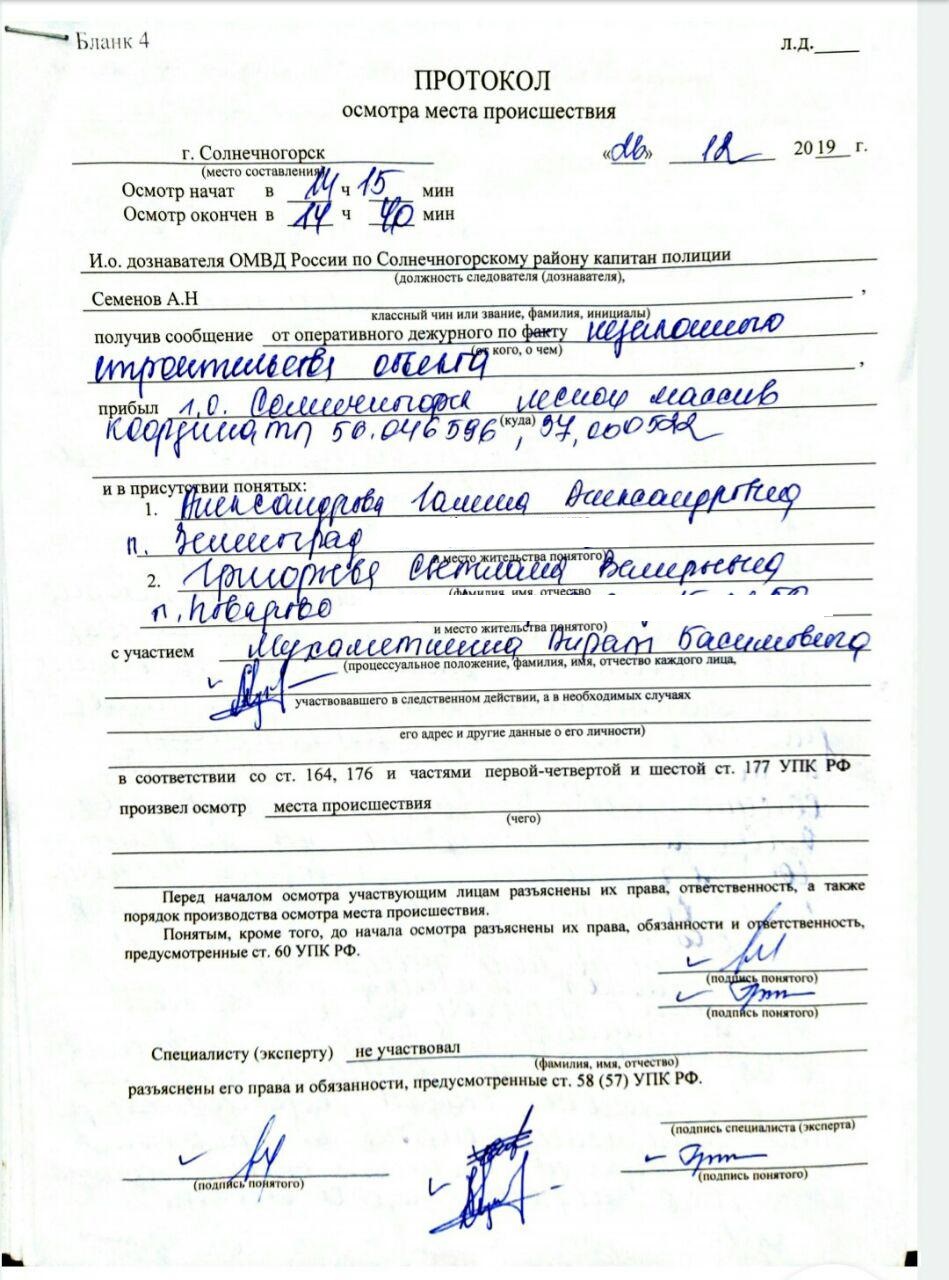 Бланк 4
л.д.
ПРОТОКОЛ
осмотра места происшествия
г. Солнечногорск «26» 12 2019 г.
(место составления)
Осмотр начат в 14 ч 15 мин
Осмотр окончен в 14 ч 40 мин
И.о. дознавателя ОМВД России по Солнечногорскому району капитан полиции
(должность следователя (дознавателя),
Семенов А.Н ,
классный чин или звание, фамилия, инициалы)
получив сообщение от оперативного дежурного по факту незаконного
(от кого, о чем)
строительства объекта ,
прибыл г.о. Солнечногорск лесной массив
(куда)
координаты 56.046596, 37,000522
и в присутствии понятых:
1. Александрова Галина Александровна
п. Зеленоград
и место жительства понятого)
2. Григорьева Светлана Валерьевна
(фамилия, имя, отчество
п. Поварово
и место жительства понятого)
с участием Мухаметшина Айрат Басимовича
(процессуальное положение, фамилия, имя, отчество каждого лица,
участвовавшего в следственном действии, а в необходимых случаях
его адрес и другие данные о его личности)
в соответствии со ст. 164, 176 и частями первой-четвертой и шестой ст. 177 УПК РФ
произвел осмотр места происшествия
(чего)
Перед началом осмотра участвующим лицам разъяснены их права, ответственность, а также
порядок производства осмотра места происшествия.
Понятым, кроме того, до начала осмотра разъяснены их права, обязанности и ответственность,
предусмотренные ст. 60 УПК РФ.
(подпись понятого)
(подпись понятого)
Специалисту (эксперту) не участвовал
(фамилия, имя, отчество)
разъяснены его права и обязанности, предусмотренные ст. 58 (57) УПК РФ.
(подпись специалиста (эксперта)
(подпись понятого) (подпись понятого)